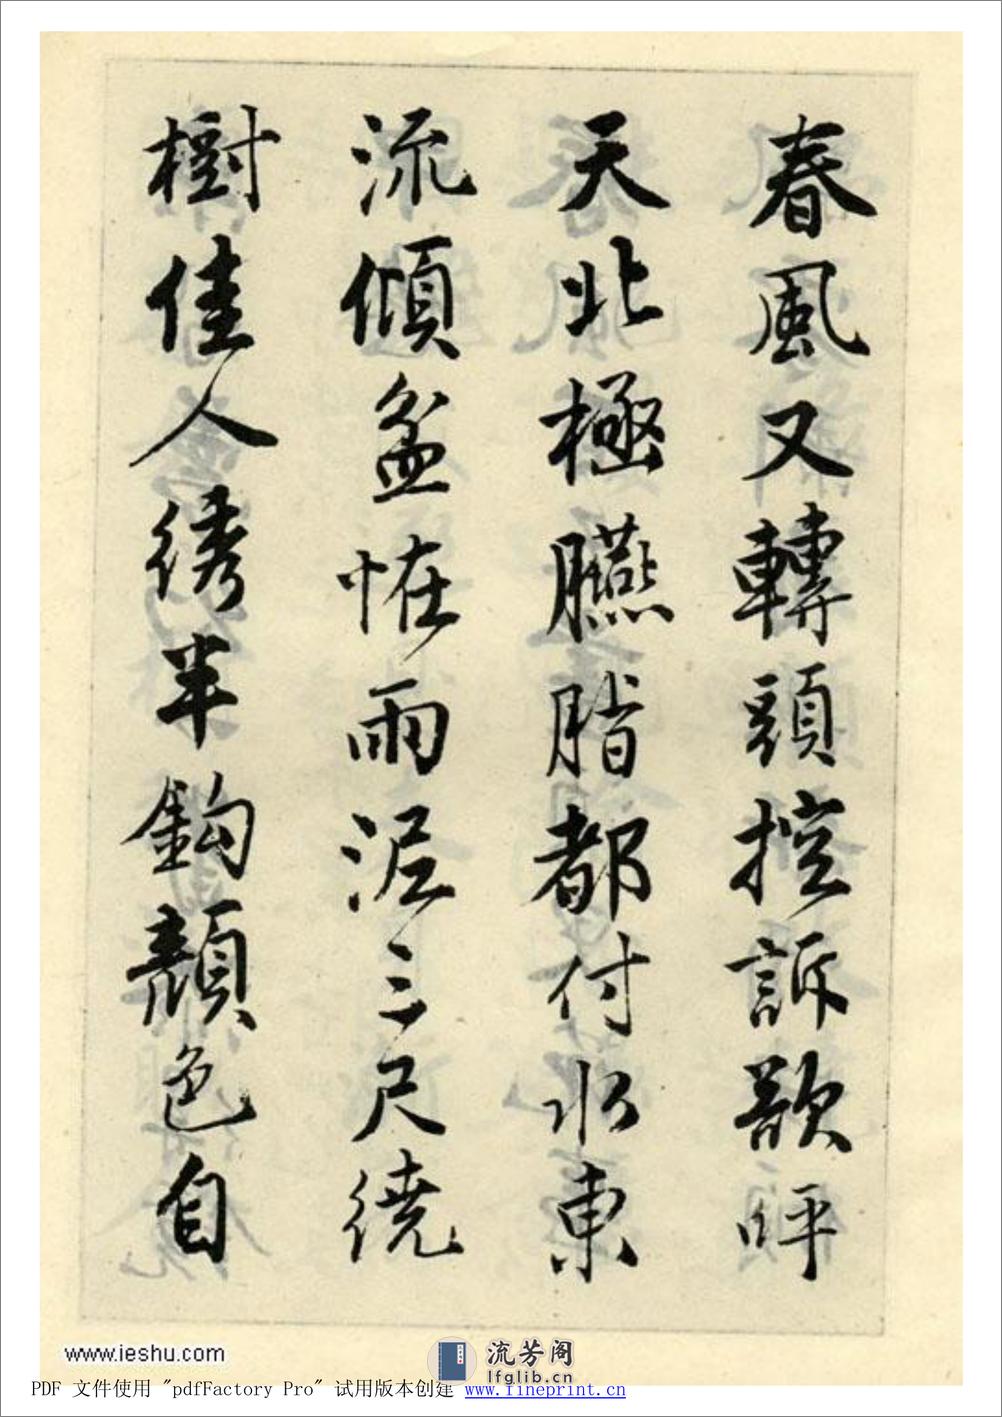 春風又轉頭控訴歌呼
天北極臙脂都付水東
流傾盆恠雨泥三尺繞
樹佳人綉半鈎顏色自
www.ieshu.com
流芳阁
lfglib.cn
PDF 文件使用 "pdfFactory Pro" 试用版本创建 www.fineprint.cn